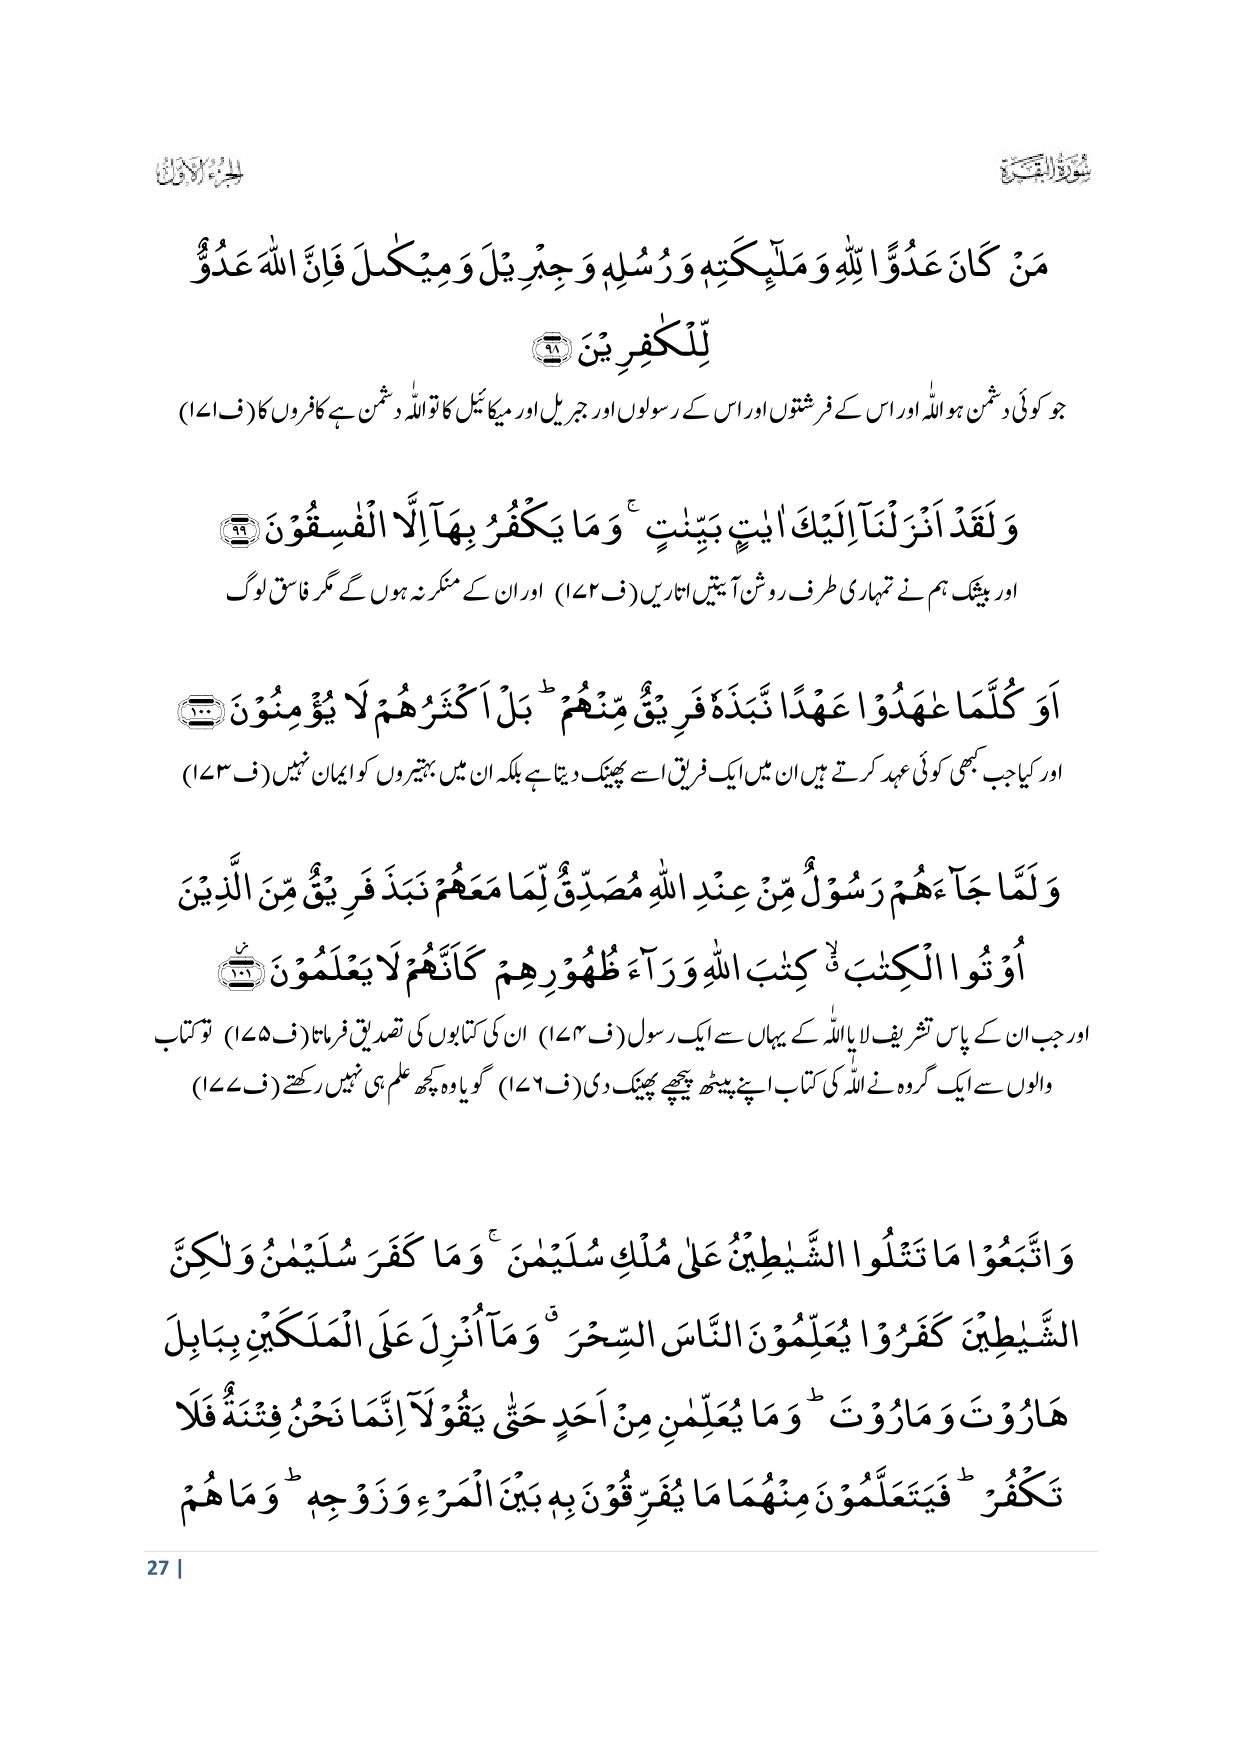 سُوْرَةُ الْبَقَرَة
الجزء الاوّل
مَنْ كَانَ عَدُوًّا لِّلّٰهِ وَ مَلٰٓئِكَتِهٖ وَ رُسُلِهٖ وَ جِبْرِیْلَ وَ مِیْكٰىلَ فَاِنَّ اللّٰهَ عَدُوٌّ
لِّلْكٰفِرِیْنَ ﴿۹۸﴾
جو کوئی دشمن ہو اللّٰہ اور اس کے فرشتوں اور اس کے رسولوں اور جبریل اور میکائیل کا تو اللّٰہ دشمن ہے کافروں کا (ف۱۷۱)
وَ لَقَدْ اَنْزَلْنَاۤ اِلَیْكَ اٰیٰتٍۭ بَیِّنٰتٍ ۚ وَ مَا یَكْفُرُ بِهَاۤ اِلَّا الْفٰسِقُوْنَ ﴿۹۹﴾
اور بیشک ہم نے تمہاری طرف روشن آیتیں اتاریں (ف۱۷۲) اور ان کے منکر نہ ہوں گے مگر فاسق لوگ
اَوَ كُلَّمَا عٰهَدُوْا عَهْدًا نَّبَذَهٗ فَرِیْقٌ مِّنْهُمْ ؕ بَلْ اَكْثَرُهُمْ لَا یُؤْمِنُوْنَ ﴿۱۰۰﴾
اور کیا جب کبھی کوئی عہد کرتے ہیں ان میں ایک فریق اسے پھینک دیتا ہے بلکہ ان میں بہتیروں کو ایمان نہیں (ف۱۷۳)
وَ لَمَّا جَآءَهُمْ رَسُوْلٌ مِّنْ عِنْدِ اللّٰهِ مُصَدِّقٌ لِّمَا مَعَهُمْ نَبَذَ فَرِیْقٌ مِّنَ الَّذِیْنَ
اُوْتُوا الْكِتٰبَ ۙۗ كِتٰبَ اللّٰهِ وَرَآءَ ظُهُوْرِهِمْ كَاَنَّهُمْ لَا یَعْلَمُوْنَ ﴿۱۰۱﴾۫
اور جب ان کے پاس تشریف لایا اللّٰہ کے یہاں سے ایک رسول (ف۱۷۴) ان کی کتابوں کی تصدیق فرماتا (ف۱۷۵) تو کتاب
والوں سے ایک گروہ نے اللّٰہ کی کتاب اپنے پیٹھ پیچھے پھینک دی (ف۱۷۶) گویا وہ کچھ علم ہی نہیں رکھتے (ف۱۷۷)
وَ اتَّبَعُوْا مَا تَتْلُوا الشَّیٰطِیْنُ عَلٰى مُلْكِ سُلَیْمٰنَ ۚ وَ مَا كَفَرَ سُلَیْمٰنُ وَ لٰكِنَّ
الشَّیٰطِیْنَ كَفَرُوْا یُعَلِّمُوْنَ النَّاسَ السِّحْرَ ۗ وَ مَاۤ اُنْزِلَ عَلَى الْمَلَكَیْنِ بِبَابِلَ
هَارُوْتَ وَ مَارُوْتَ ؕ وَ مَا یُعَلِّمٰنِ مِنْ اَحَدٍ حَتّٰى یَقُوْلَاۤ اِنَّمَا نَحْنُ فِتْنَةٌ فَلَا
تَكْفُرْ ؕ فَیَتَعَلَّمُوْنَ مِنْهُمَا مَا یُفَرِّقُوْنَ بِهٖ بَیْنَ الْمَرْءِ وَ زَوْجِهٖ ؕ وَ مَا هُمْ
27 |